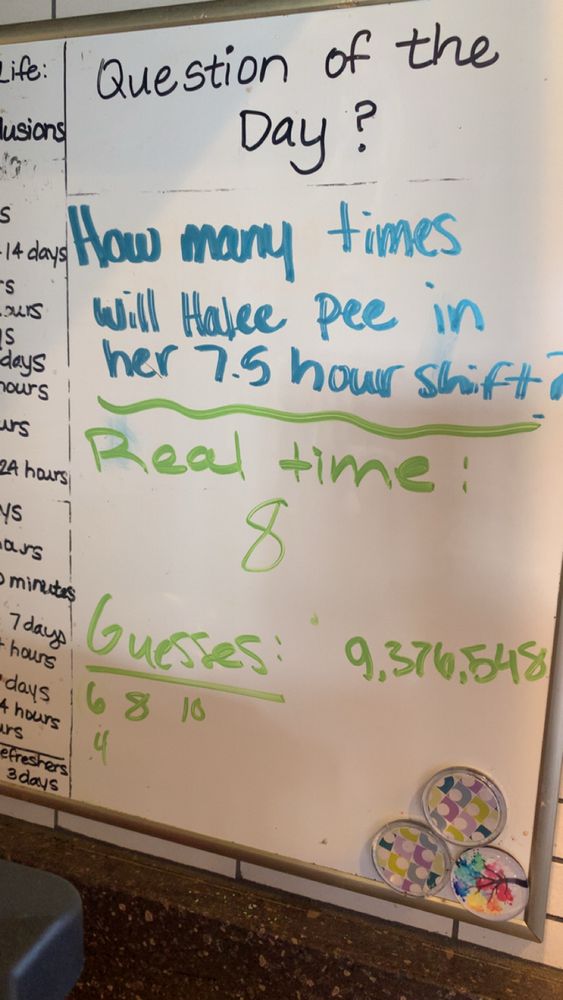 Life:
lusions
s
-14 days
rs
ours
ys
days
hours
urs
24 hours
ys
ours
0 minutes
7 days
hours
days
4 hours
urs
efreshers
3 days
Question of the
Day?
How many times
will Halee pee in
her 7.5 hour shift?
Real time:
8
Guesses: 9,376,548
6 8 10
4